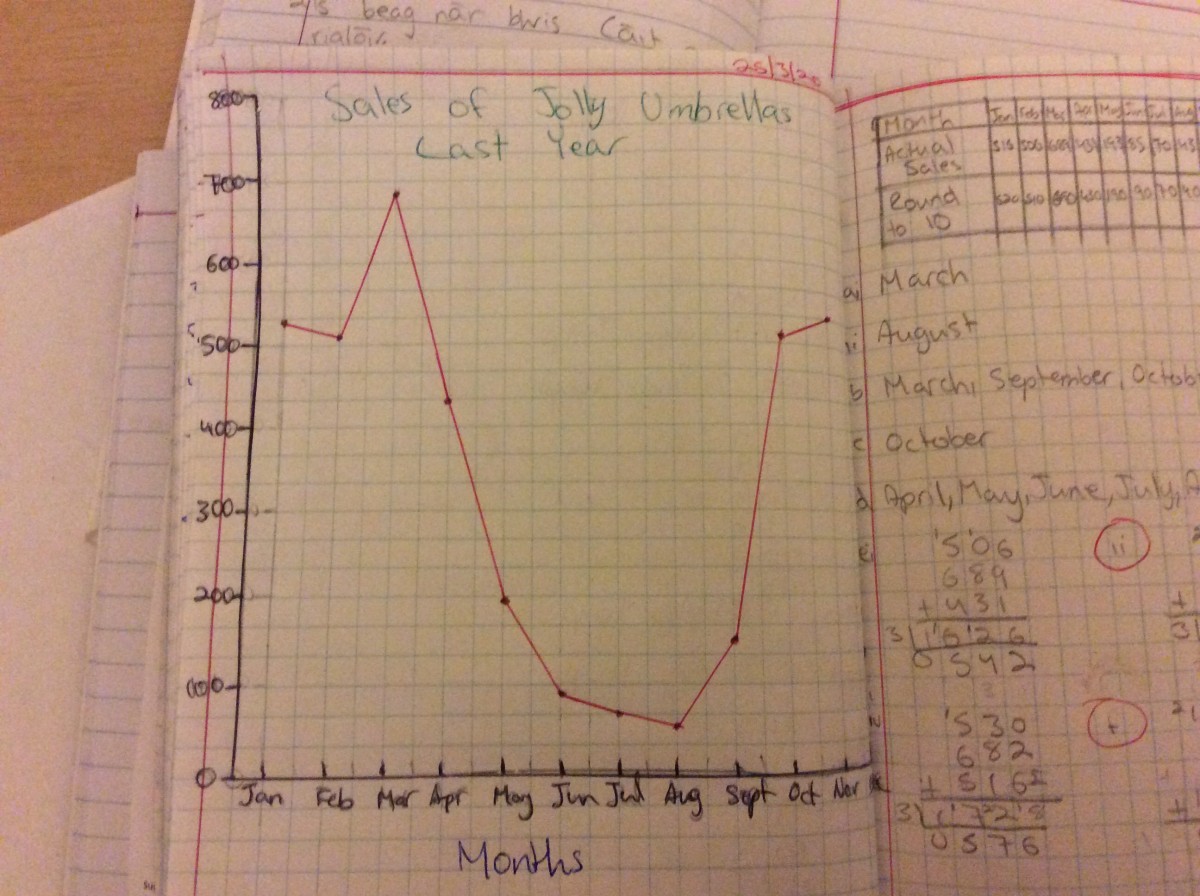 beag nár bhris Cáit
rialóir.
25/3/20
Sales of Jolly Umbrellas
Last Year
800
700
600
500
400
300
200
100
0
Jan Feb Mar Apr May Jun Jul Aug Sept Oct Nov
Months
Month Jan Feb Mar Apr May Jun Jul Aug
Actual Sales 515 506 689 431 193 85 70 45
Round to 10 520 510 690 430 190 90 70
a, March
ii August
b March, September, Octob
c October
d April, May, June, July, A
e 506
689
+ 431
3 1626
0542
ii
+
31
530
682
+ 516
3 1728
0576
+
21
+